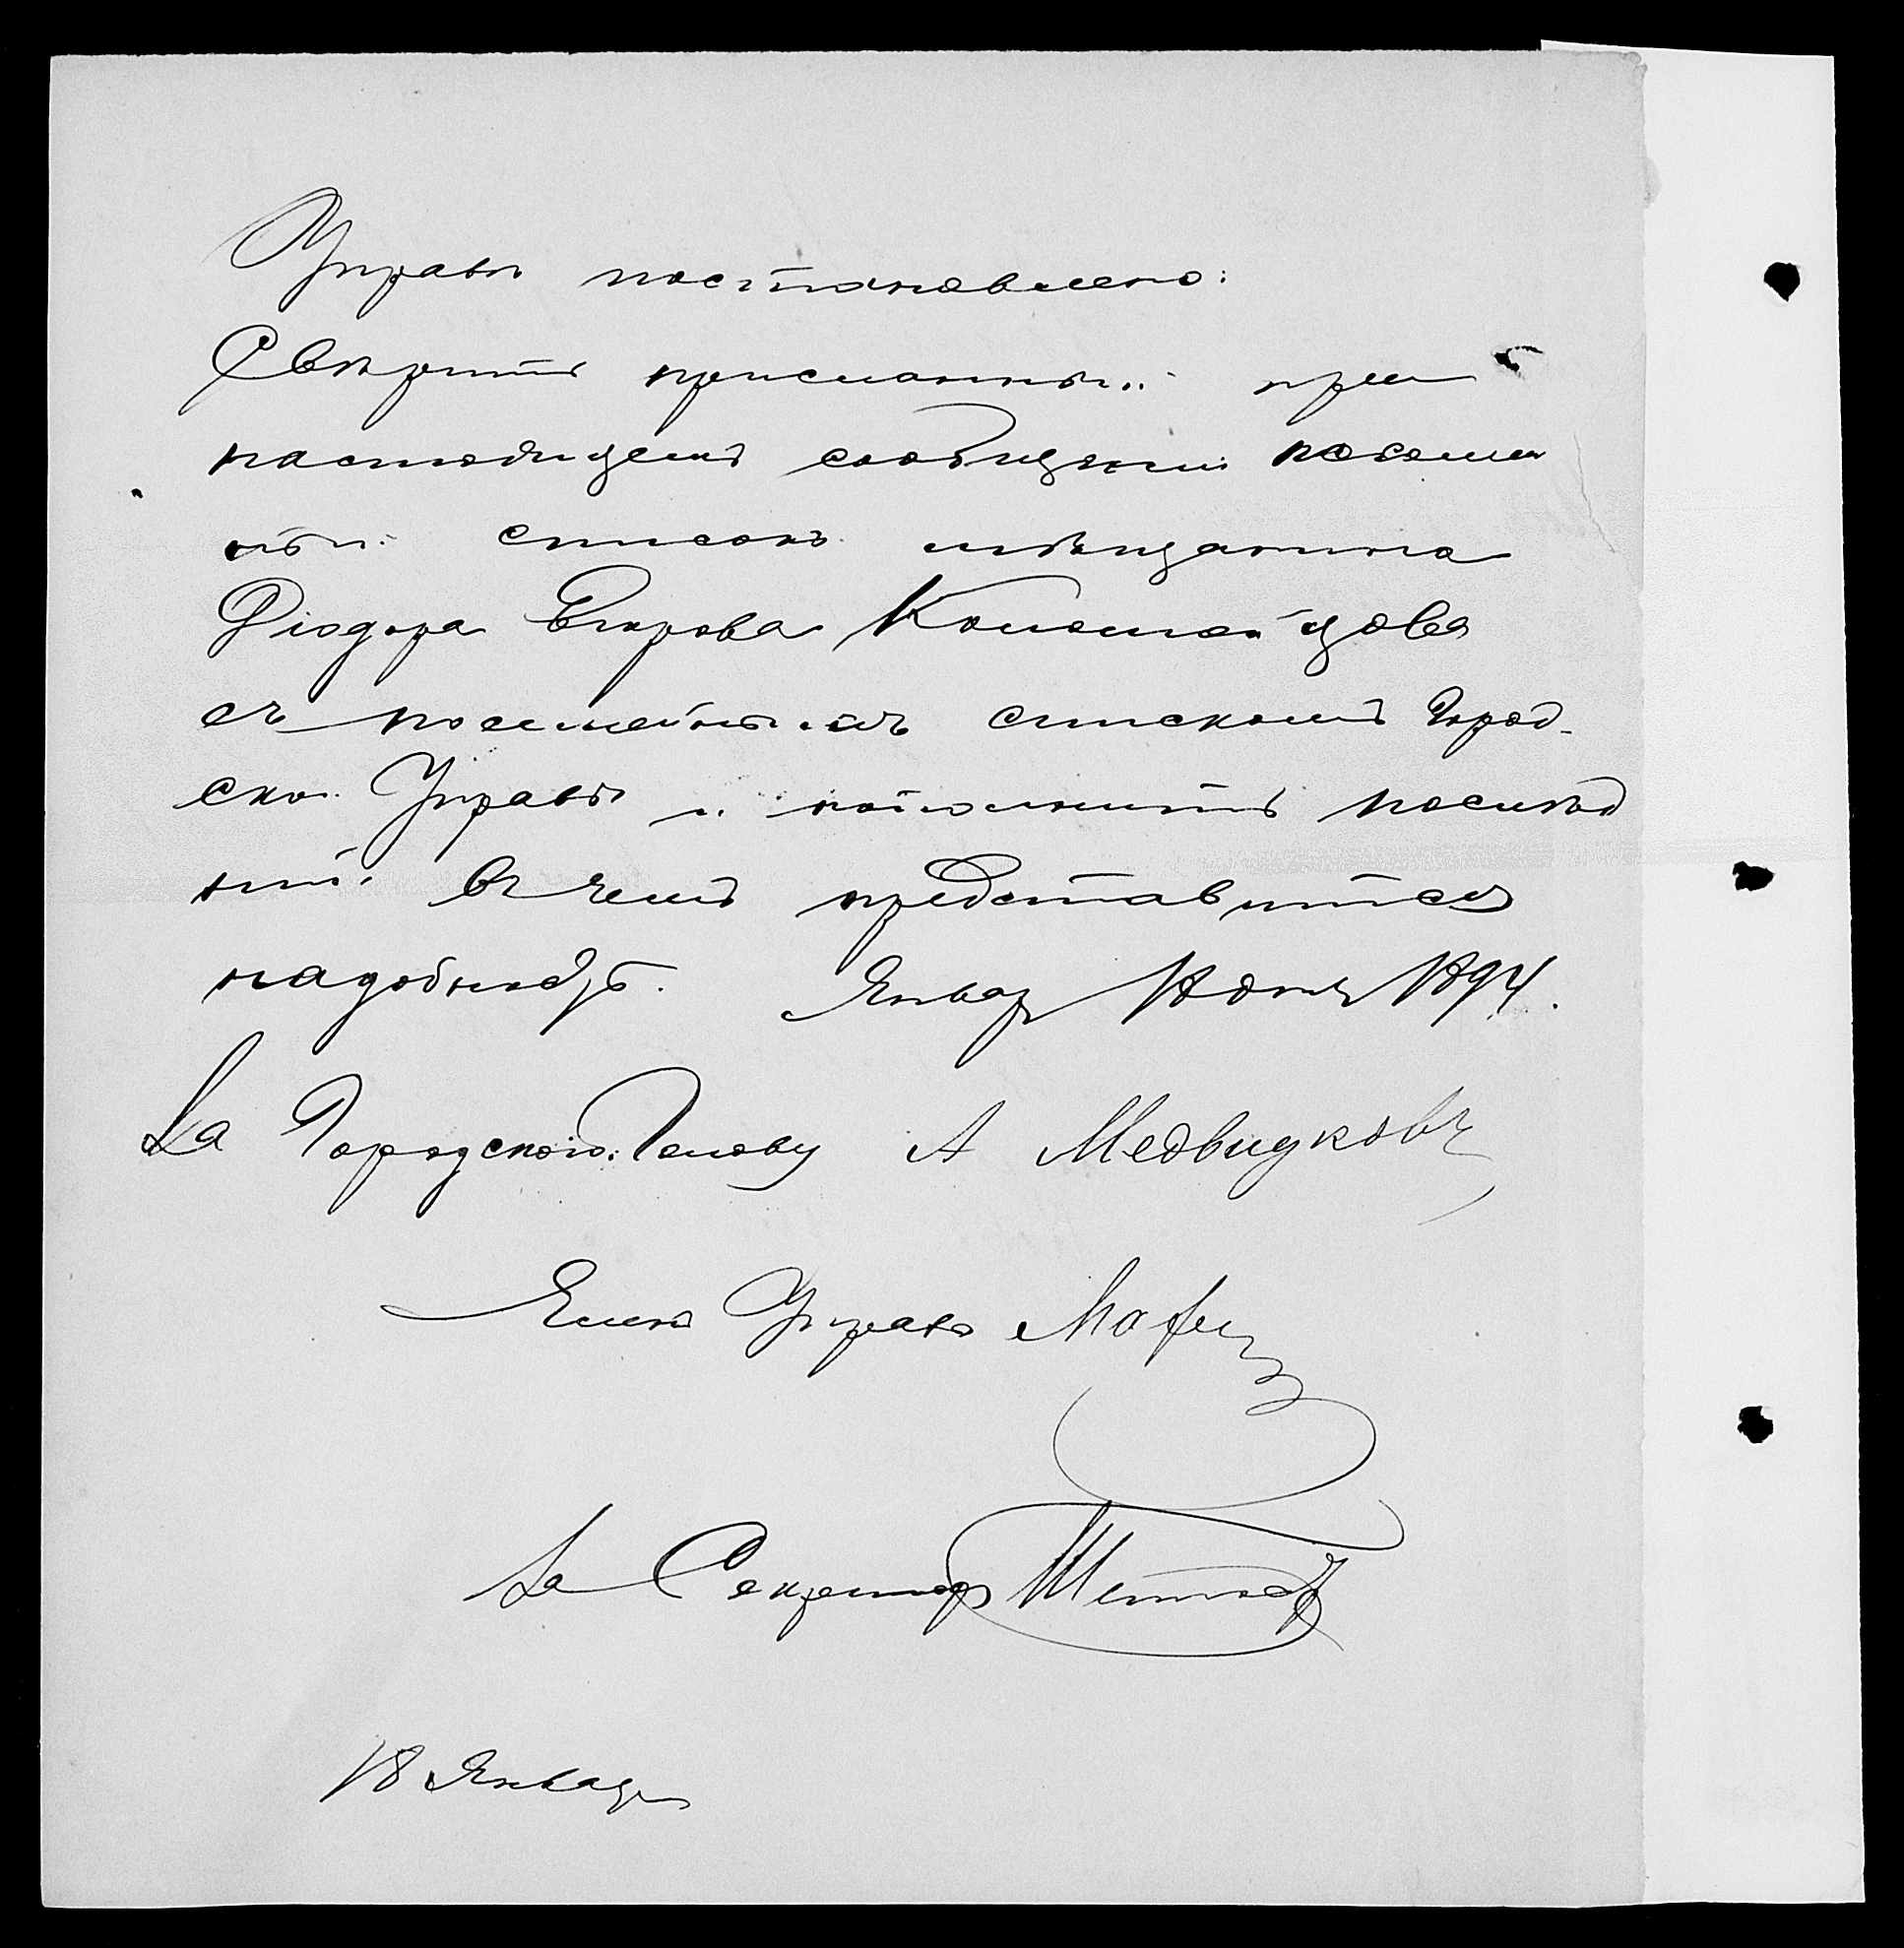 Управы постановлено:
Сверить присланный при
настоящемъ сообщении посемей
ный списокъ мѣщанина
Діодора Егорова Коломейцова
съ посемейнымъ спискомъ Город-
ской Управы и пополнить послѣд
ній въ чемъ представится
надобность. Января 18 дня 1894.
За Городского Голову А Медвидковъ
Членъ Управы
За Секретаря
18 Января